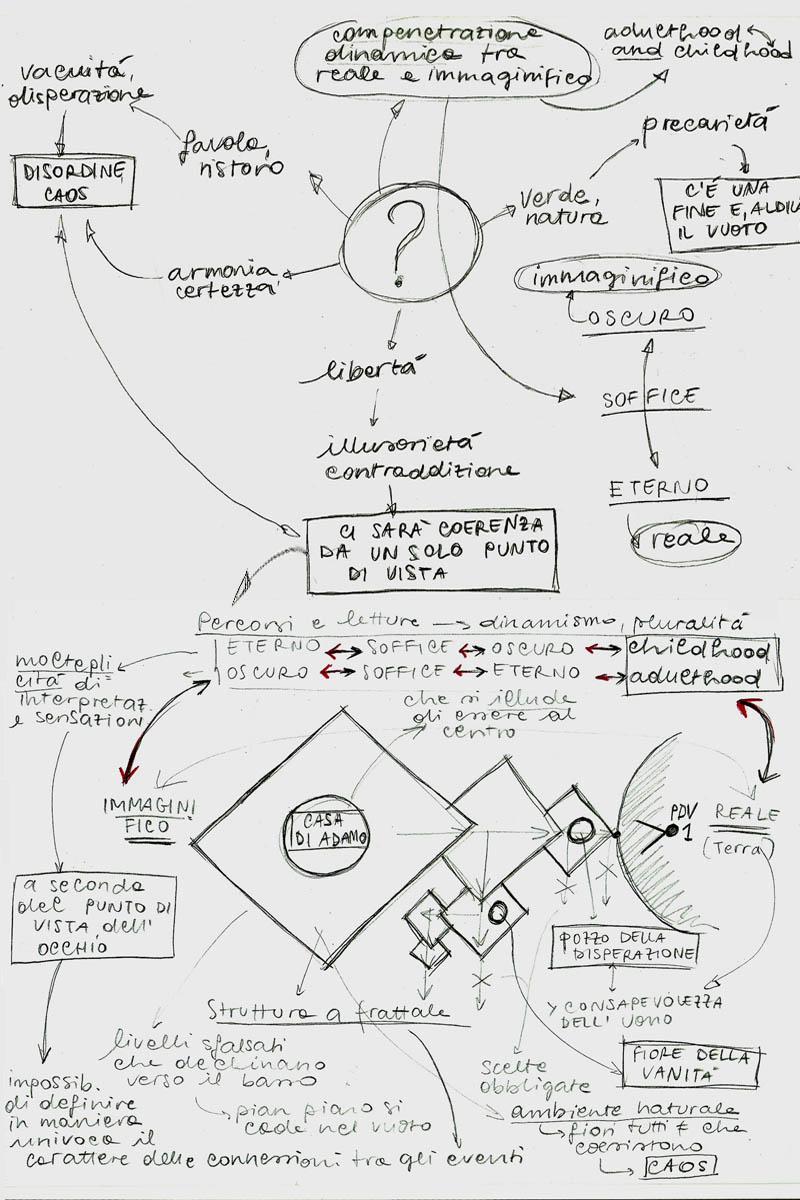 compenetrazione
dinamica tra
reale e immaginifico
adulthood
and childhood
vacuità,
disperazione
favola,
ristoro
precarietà
DISORDINE
CAOS
verde,
natura
C'È UNA
FINE E, ALDILÀ
IL VUOTO
?
armonia
certezza
immaginifico
OSCURO
libertà
SOFFICE
illusorietà
contraddizione
ETERNO
reale
CI SARÀ COERENZA
DA UN SOLO PUNTO
DI VISTA
Percorsi e letture → dinamismo, pluralità
ETERNO ↔ SOFFICE ↔ OSCURO ↔ childhood
OSCURO ↔ SOFFICE ↔ ETERNO ↔ adulthood
moltepli
cità di
interpretaz.
e sensazioni
che si illude
di essere al
centro
IMMAGINI
FICO
CASA
DI ADAMO
PDV
1
REALE
(Terra)
a seconda
del PUNTO DI
VISTA dell'
OCCHIO
POZZO DELLA
DISPERAZIONE
Struttura a frattale
CONSAPEVOLEZZA
DELL'UOMO
livelli sfalsati
che declinano
verso il basso
scelte
obbligate
FIORE DELLA
VANITÀ
pian piano si
cade nel vuoto
ambiente naturale
fiori tutti ≠ che
coesistono
CAOS
impossib.
di definire
in maniera
univoca il
carattere delle connessioni tra gli eventi